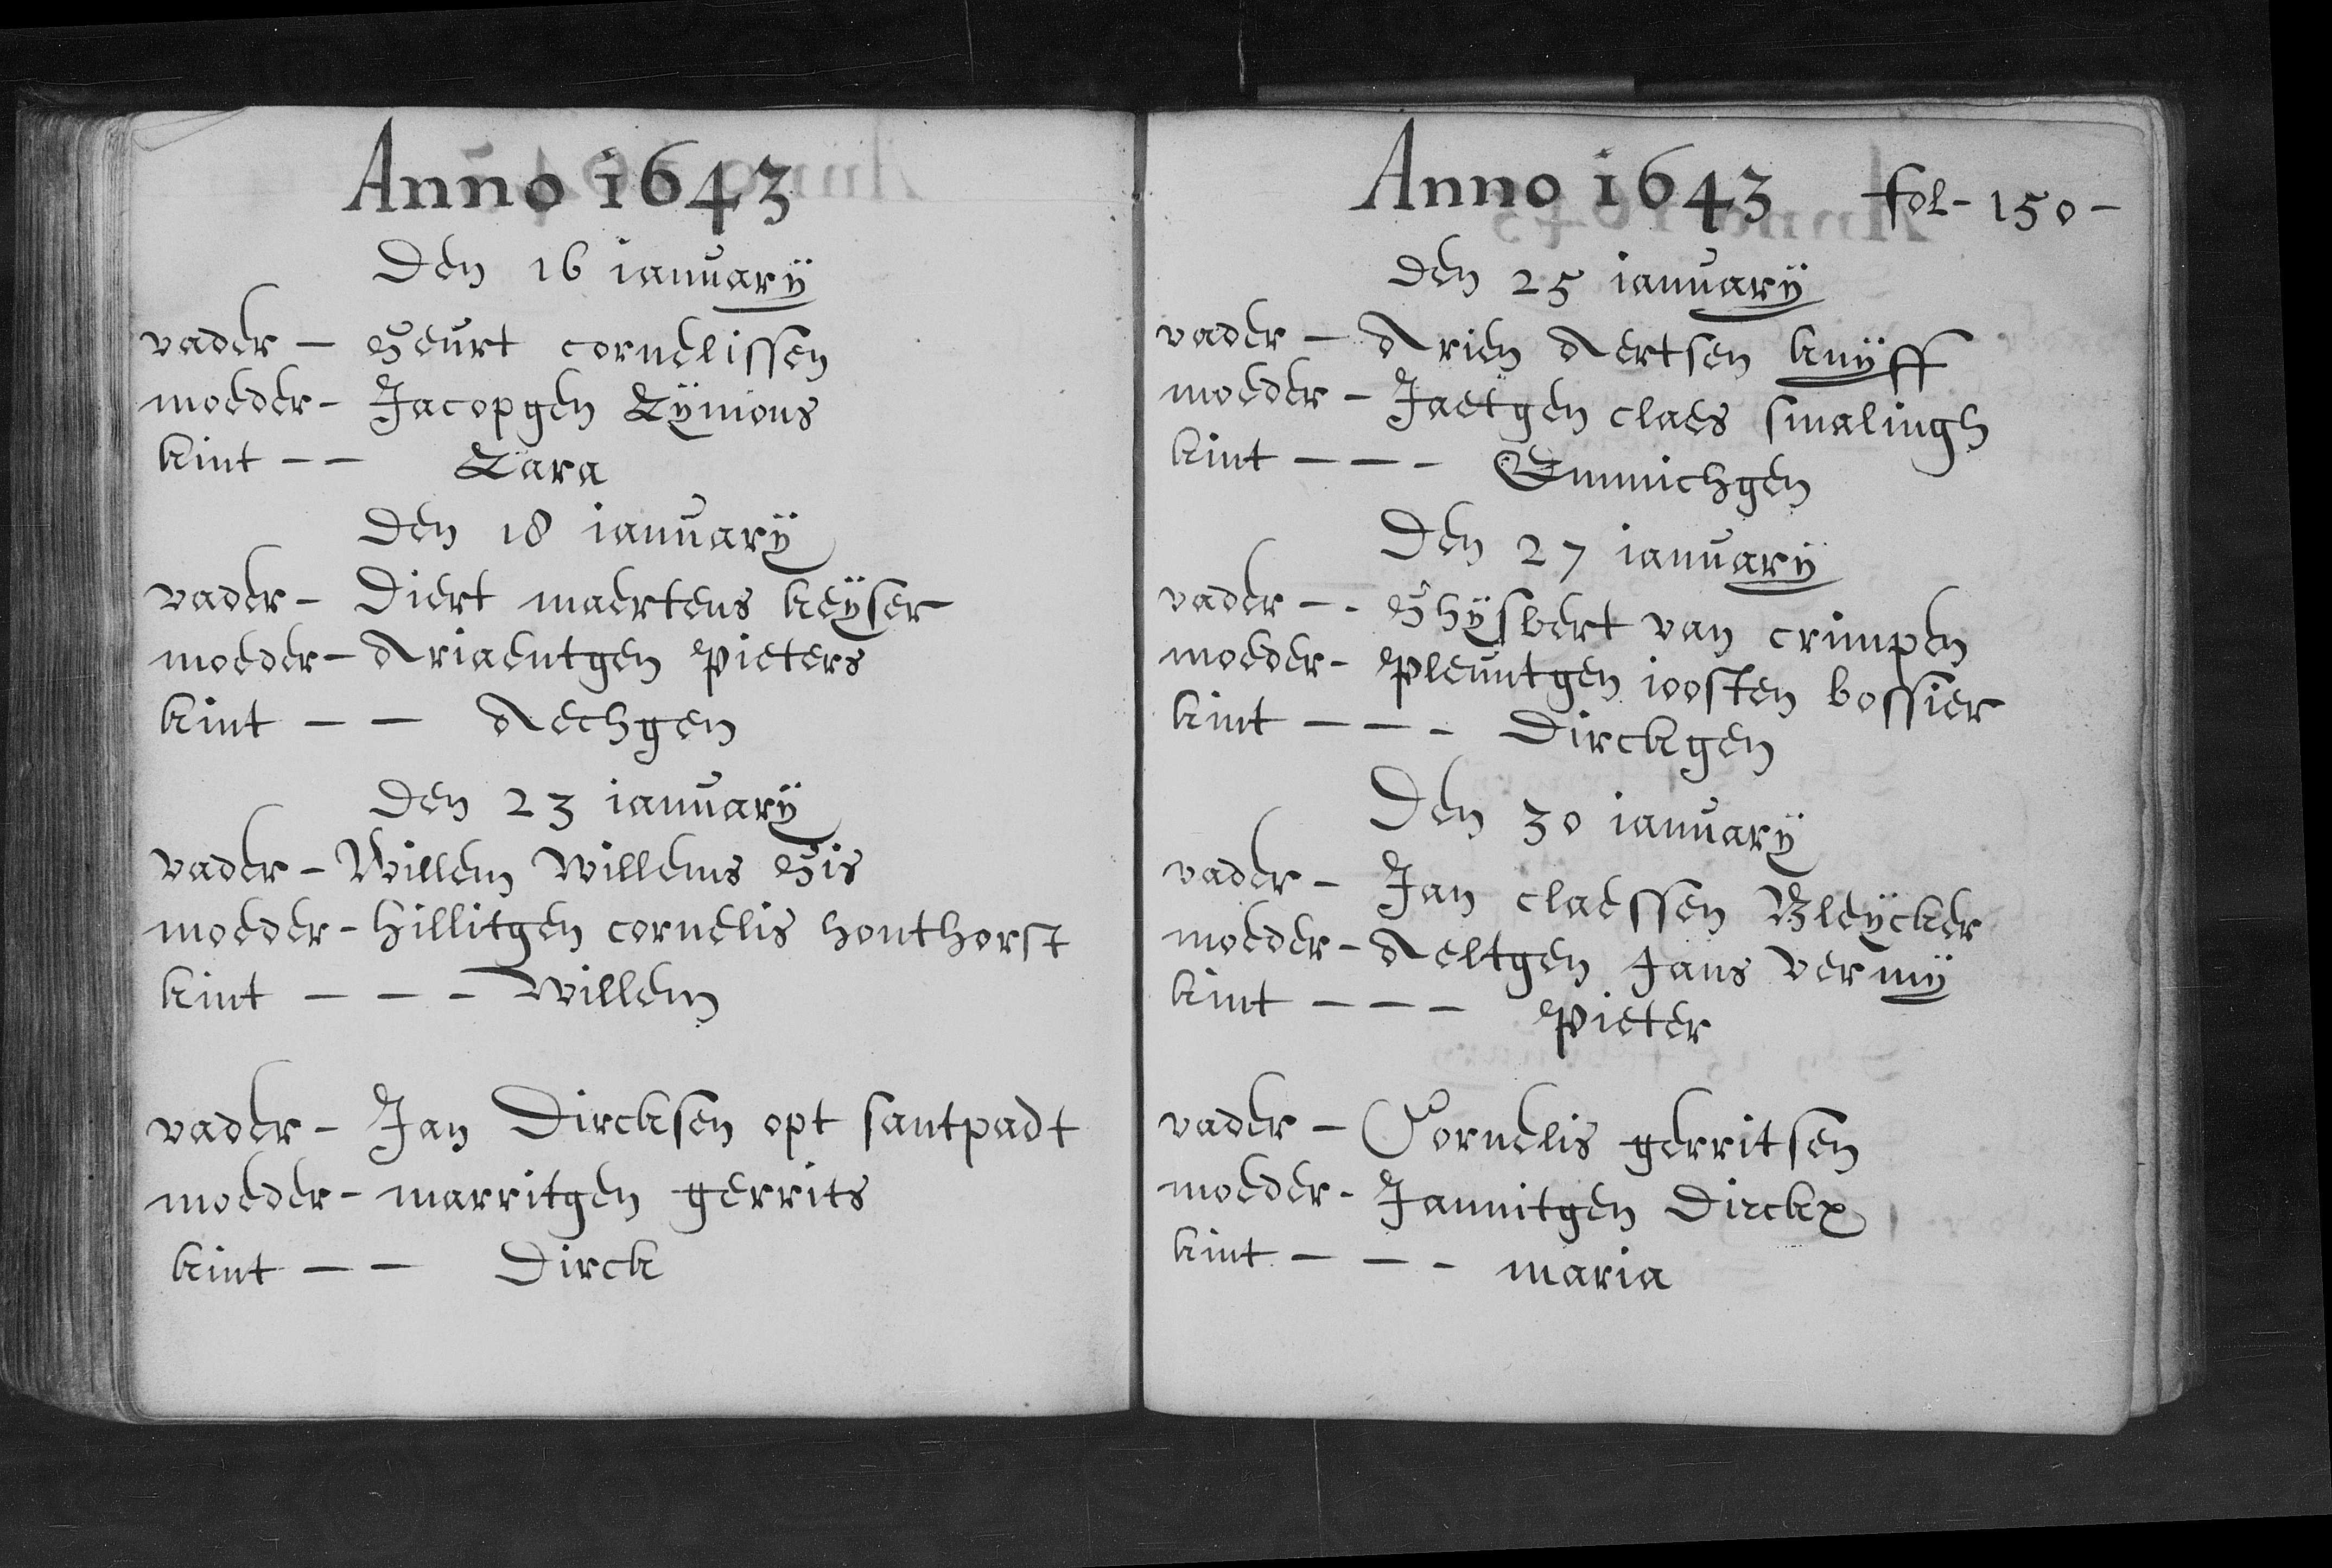 Anno 1643
Den 16 ianuarÿ
vader - Geurt cornelissen
moeder - Jacopgen Quÿmons
kint - - Sara
Den 18 ianuarÿ
vader - Diert maertens keÿser
moeder - Ariaentgen Pieters
kint - - Aechgen
Den 23 ianuarÿ
vader - Willem Willems Gis
moeder - hillitgen cornelis honthorst
kint - - - Willem
vader - Jan Dircksen opt santpadt
moeder - marritgen gerrits
kint - - Dirck
Anno 1643 fol - 150 -
Den 25 ianuarÿ
vader - Arien Aertsen knÿff
moeder - Jaetgen claes smalingh
kint - - - Emmichgen
Den 27 ianuarÿ
vader - - Ghÿsbert van crimpen
moeder - Pleuntgen ioosten bossier
kint - - - Dirckgen
Den 30 ianuarÿ
vader - Jan claessen Bleÿcker
moeder - Aeltgen Jans vermÿ
kint - - - Pieter
vader - Cornelis gerritsen
moeder - Jannitgen Dirckx
kint - - - maria